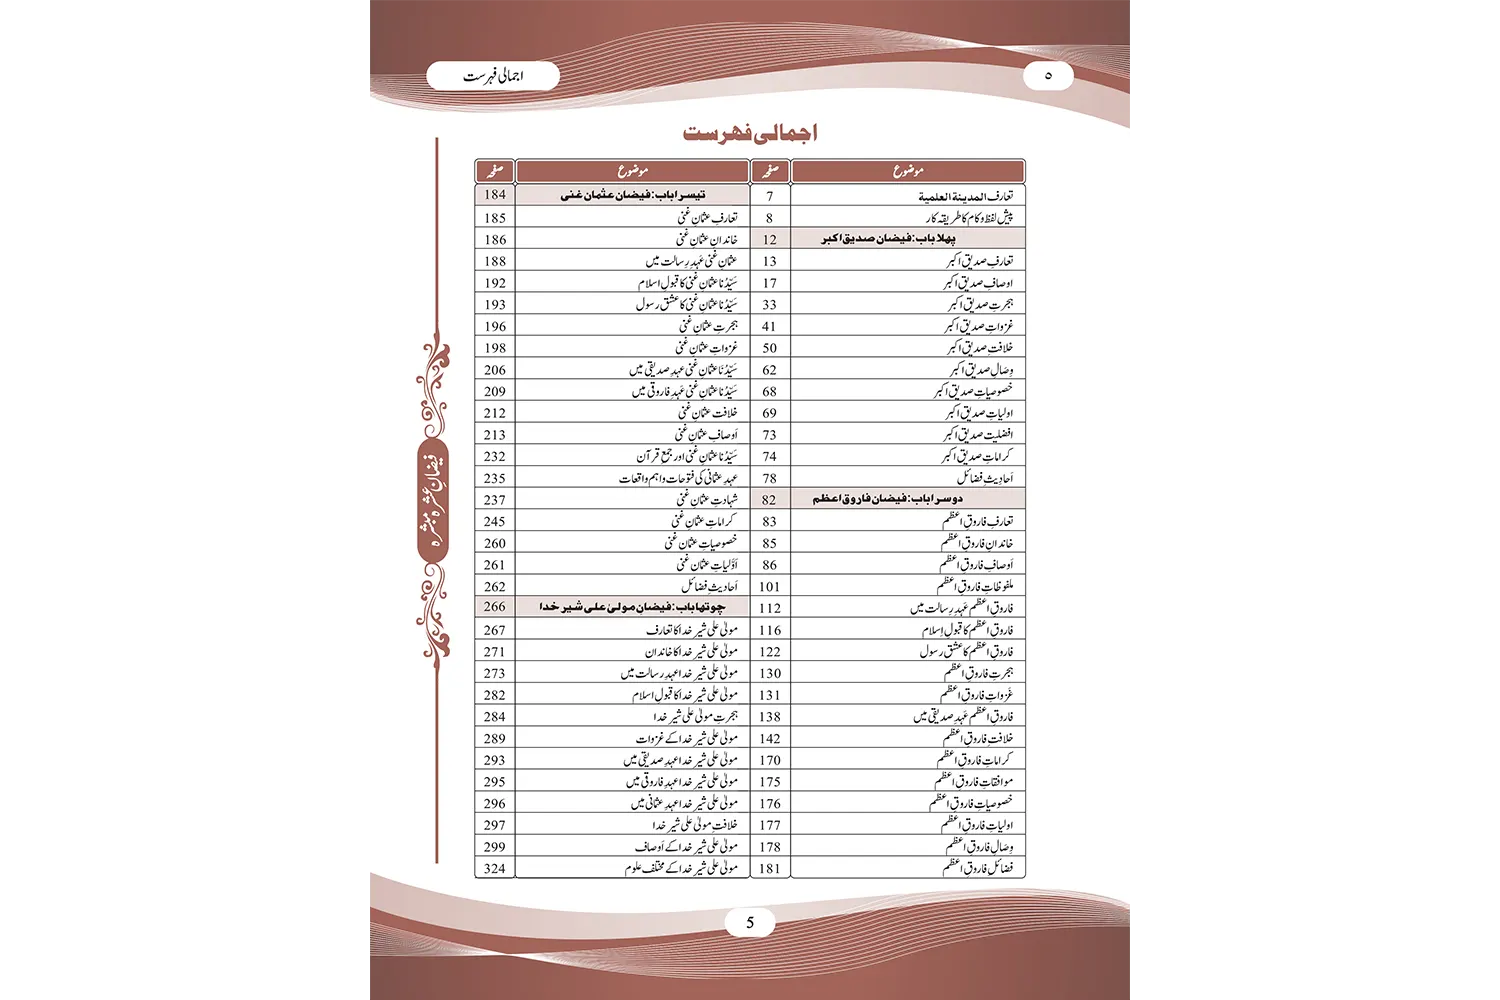 اجمالی فہرست
۵
اجمالی فہرست
موضوع صفحہ
تعارف المدینۃ العلمیۃ 7
پیش لفظ و کام کا طریقہ کار 8
پہلا باب: فیضان صدیق اکبر 12
تعارفِ صدیق اکبر 13
اوصافِ صدیق اکبر 17
ہجرتِ صدیق اکبر 33
غزواتِ صدیق اکبر 41
خلافتِ صدیق اکبر 50
وِصالِ صدیق اکبر 62
خصوصیاتِ صدیق اکبر 68
اولیاتِ صدیق اکبر 69
افضلیت صدیق اکبر 73
کراماتِ صدیق اکبر 74
اَحادِیثِ فضائل 78
دوسرا باب: فیضان فاروق اعظم 82
تعارفِ فاروقِ اعظم 83
خاندانِ فاروقِ اعظم 85
اَوصافِ فاروقِ اعظم 86
ملفوظاتِ فاروقِ اعظم 101
فاروقِ اعظم عہدِ رِسالت میں 112
فاروقِ اعظم کا قبولِ اِسلام 116
فاروقِ اعظم کا عشق رسول 122
ہجرتِ فاروقِ اعظم 130
غَزواتِ فاروقِ اعظم 131
فاروقِ اعظم عَہدِ صدیقی میں 138
خلافتِ فاروقِ اعظم 142
کراماتِ فاروقِ اعظم 170
موافقاتِ فاروقِ اعظم 175
خصوصیاتِ فاروقِ اعظم 176
اولیاتِ فاروقِ اعظم 177
وِصالِ فاروقِ اعظم 178
فضائلِ فاروقِ اعظم 181
موضوع صفحہ
تیسرا باب: فیضان عثمان غنی 184
تعارفِ عثمانِ غنی 185
خاندانِ عثمانِ غنی 186
عثمانِ غنی عَہدِ رِسالت میں 188
سَیِّدُنا عثمانِ غنی کا قبولِ اسلام 192
سَیِّدُنا عثمانِ غنی کا عشق رسول 193
ہجرتِ عثمانِ غنی 196
غزواتِ عثمانِ غنی 198
سَیِّدُنا عثمانِ غنی عہدِ صدیقی میں 206
سَیِّدُنا عثمانِ غنی عَہدِ فاروقی میں 209
خلافت عثمانِ غنی 212
اَوصافِ عثمانِ غنی 213
سَیِّدُنا عثمانِ غنی اور جمعِ قرآن 232
عہدِ عثمانی کی فتوحات و اہم واقعات 235
شہادتِ عثمانِ غنی 237
کراماتِ عثمانِ غنی 245
خصوصیاتِ عثمان غنی 260
اَوَّلیاتِ عثمان غنی 261
اَحادیثِ فضائل 262
چوتھا باب: فیضان مولیٰ علی شیر خدا 266
مولیٰ علی شیرِ خدا کا تعارف 267
مولیٰ علی شیرِ خدا کا خاندان 271
مولیٰ علی شیرِ خدا عہدِ رسالت میں 273
مولیٰ علی شیرِ خدا کا قبولِ اسلام 282
ہجرتِ مولیٰ علی شیرِ خدا 284
مولیٰ علی شیرِ خدا کے غزوات 289
مولیٰ علی شیرِ خدا عہدِ صدیقی میں 293
مولیٰ علی شیرِ خدا عہدِ فاروقی میں 295
مولیٰ علی شیرِ خدا عہدِ عثمانی میں 296
خلافتِ مولیٰ علی شیرِ خدا 297
مولیٰ علی شیرِ خدا کے اَوصاف 299
مولیٰ علی شیرِ خدا کے مختلف علوم 324
فیضانِ عشرہ مبشرہ
5